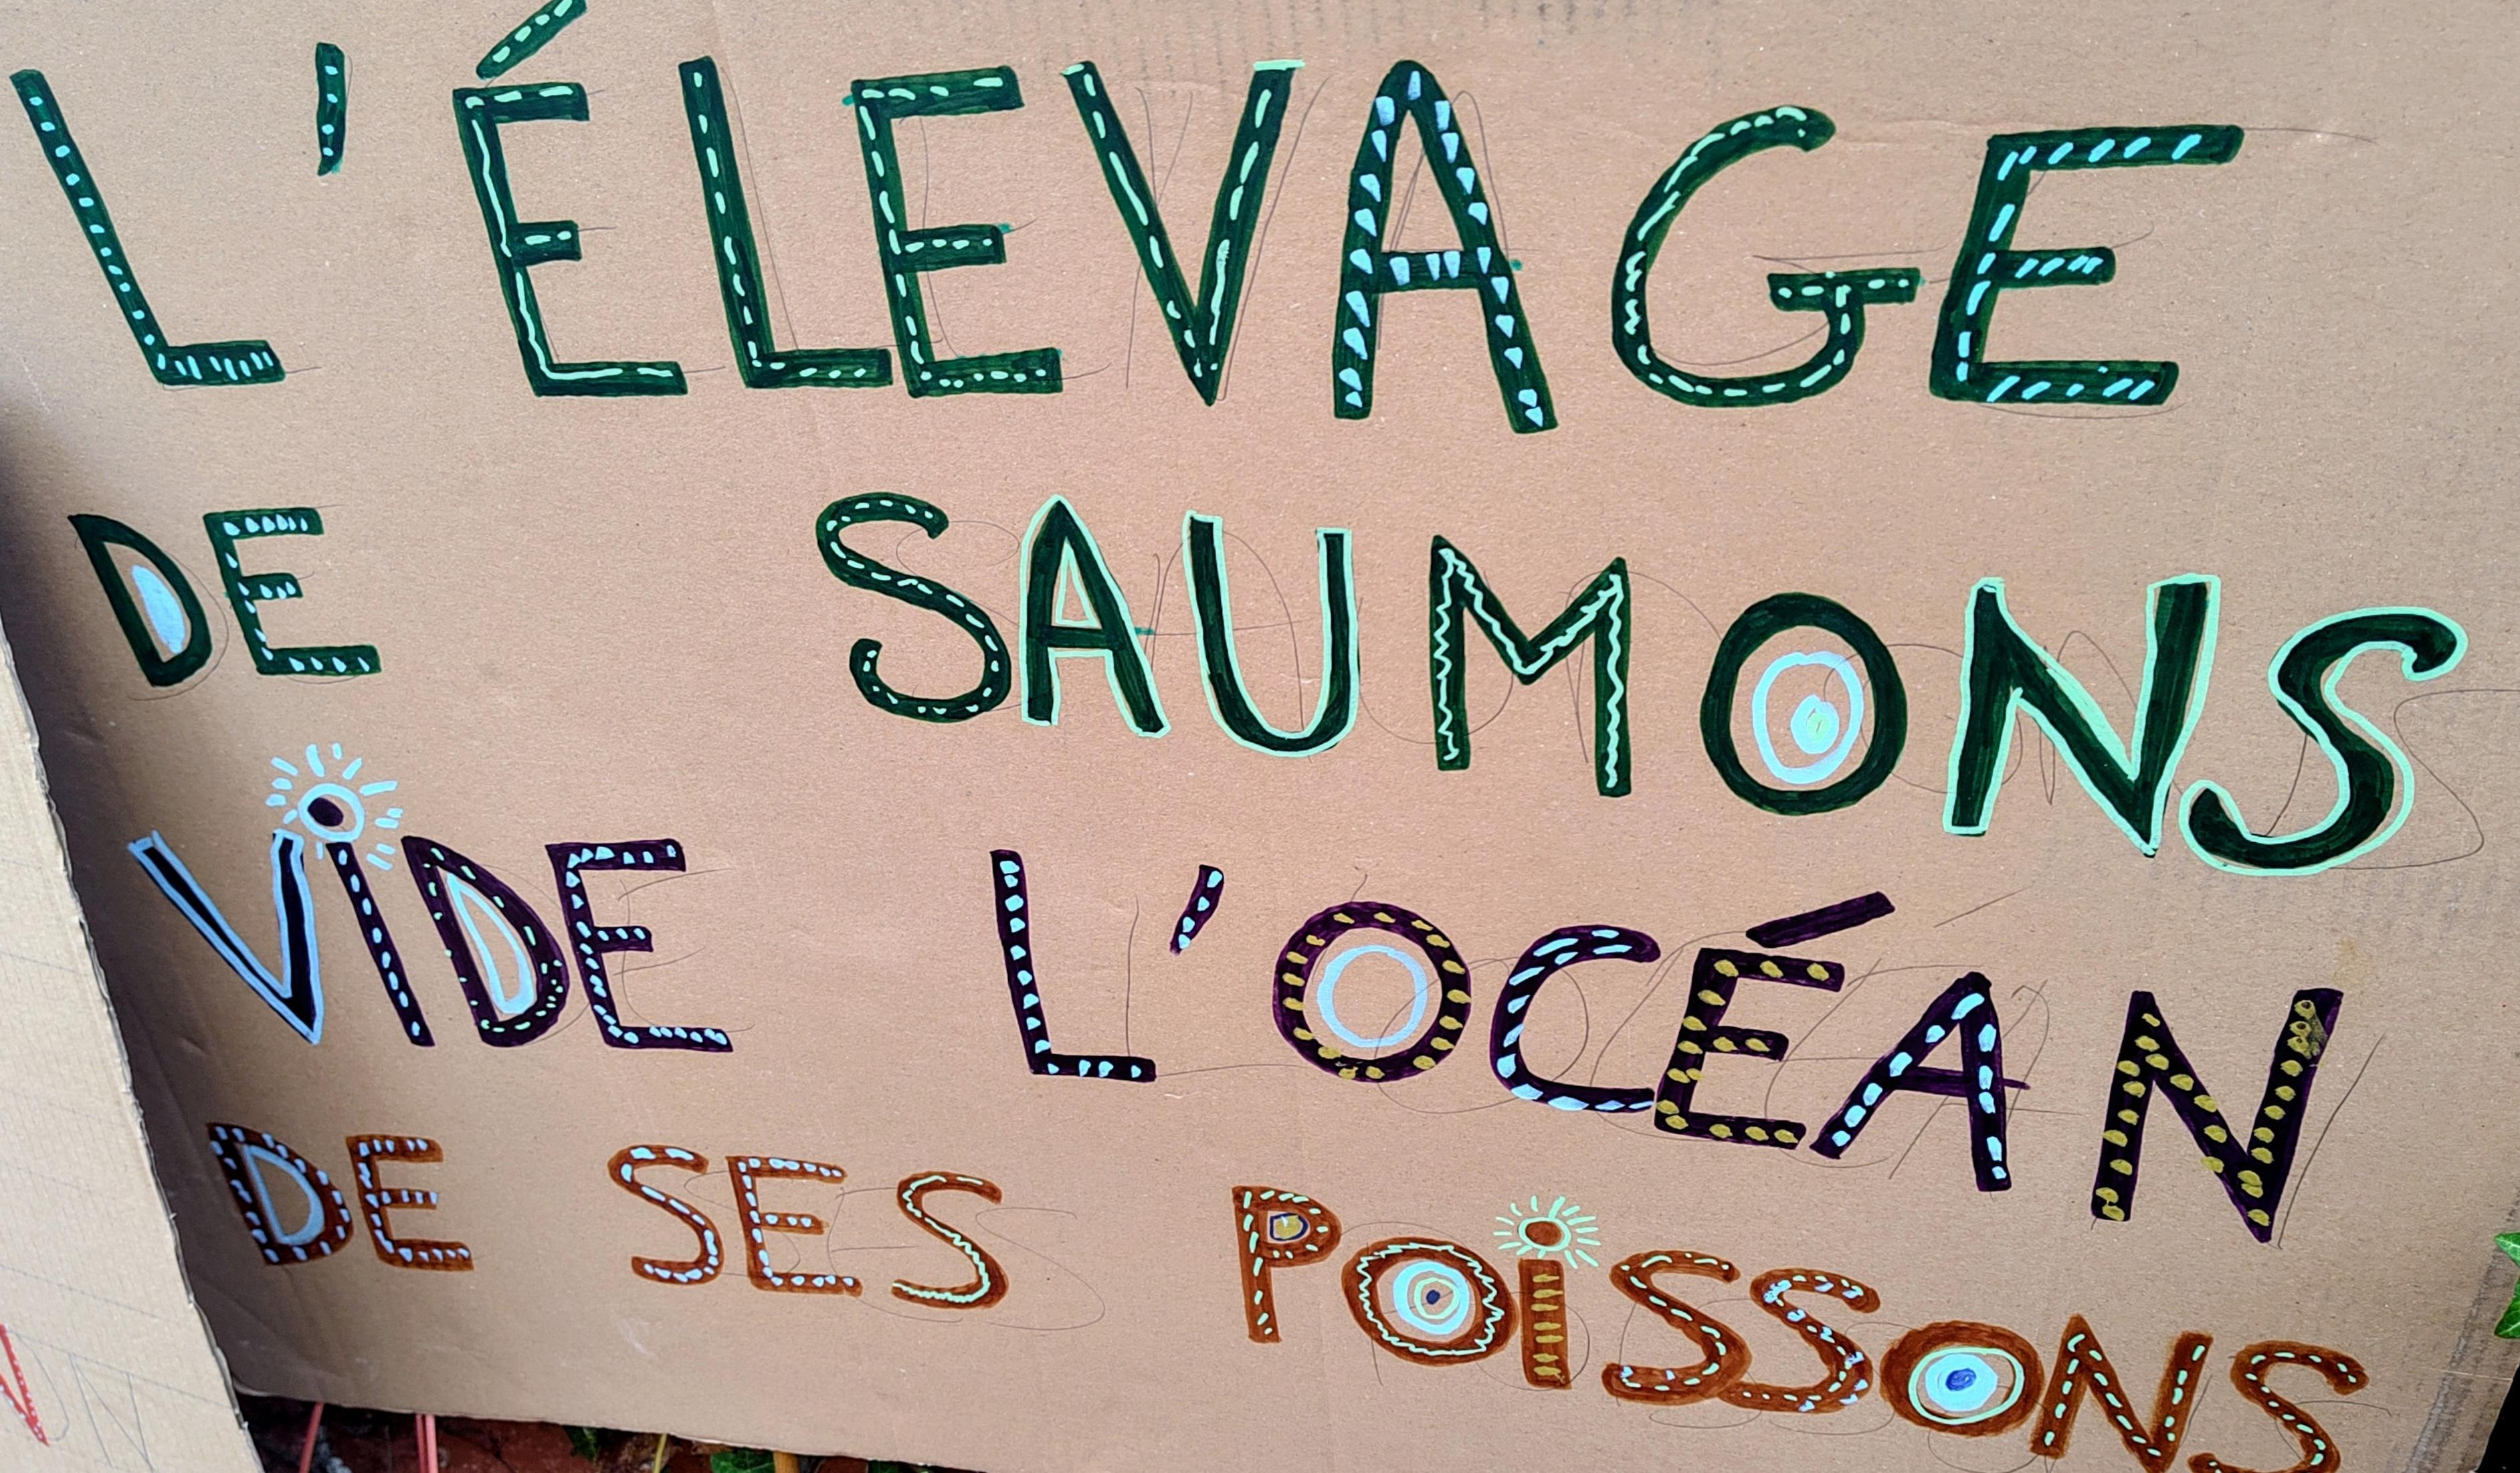 L'ÉLEVAGE
DE SAUMONS
ViDE L'OCÉAN
DE SES POiSSONS